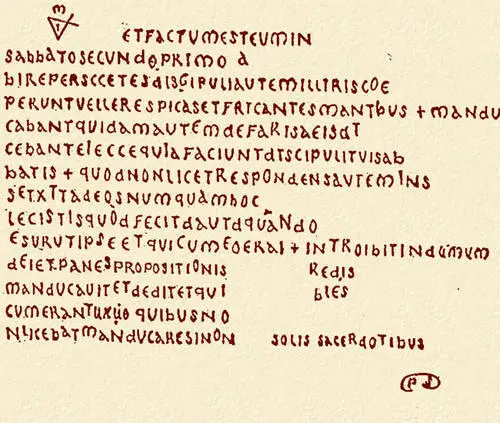 ETFACTUMESTEUMIN
SABBATOSECUNDOPRIMO A
BIREPERSCCETESDISGIPULIAUTEMILLIRISCOE
PERUNTVELLERESPICASETFRICANTESMANTBUS + MANDU
CABANTQUIDAMAUTEMDEFARISAEISDT
CEBANTELECCEQUIAFACIUNTDTSCIPULITVISAB
BATIS + QUODNONLICETRESPONDENSAUTEMINS
SETXTTADEOSNUMQUAMBOC
LECISTISQUODFECITDAUTDQUANDO
ESURUTIPSEETQUICUMEOERAI + INTROIBITINDUMUM
DEIETPANESPROPOSITIONIS REDIS
MANDUCAUITETDEDITETQUI BLES
CUMERANTUXUO QUIBUSNO
NLICEBATMANDUCARESINON SOLIS SACERDOTIBUS
PS